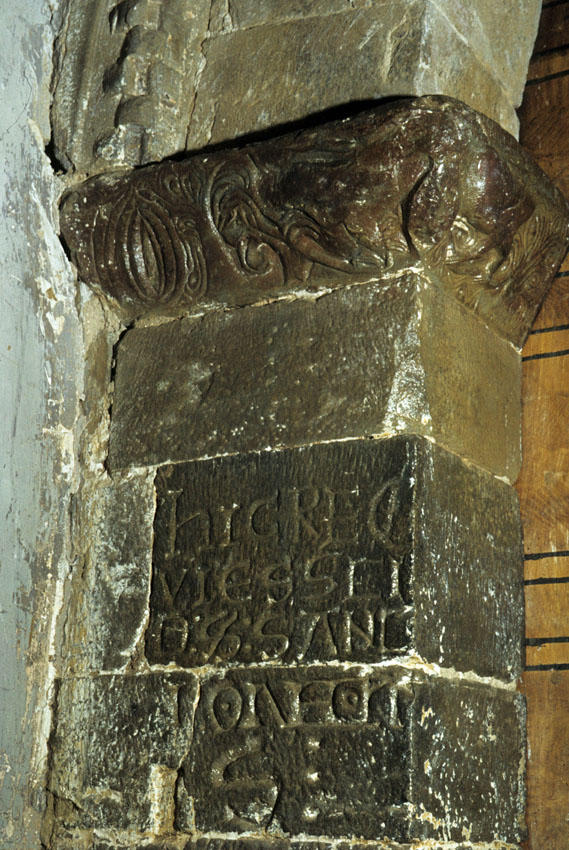 hICREQ
VIEGSEI
D:S:SAND
IONEOI
S: